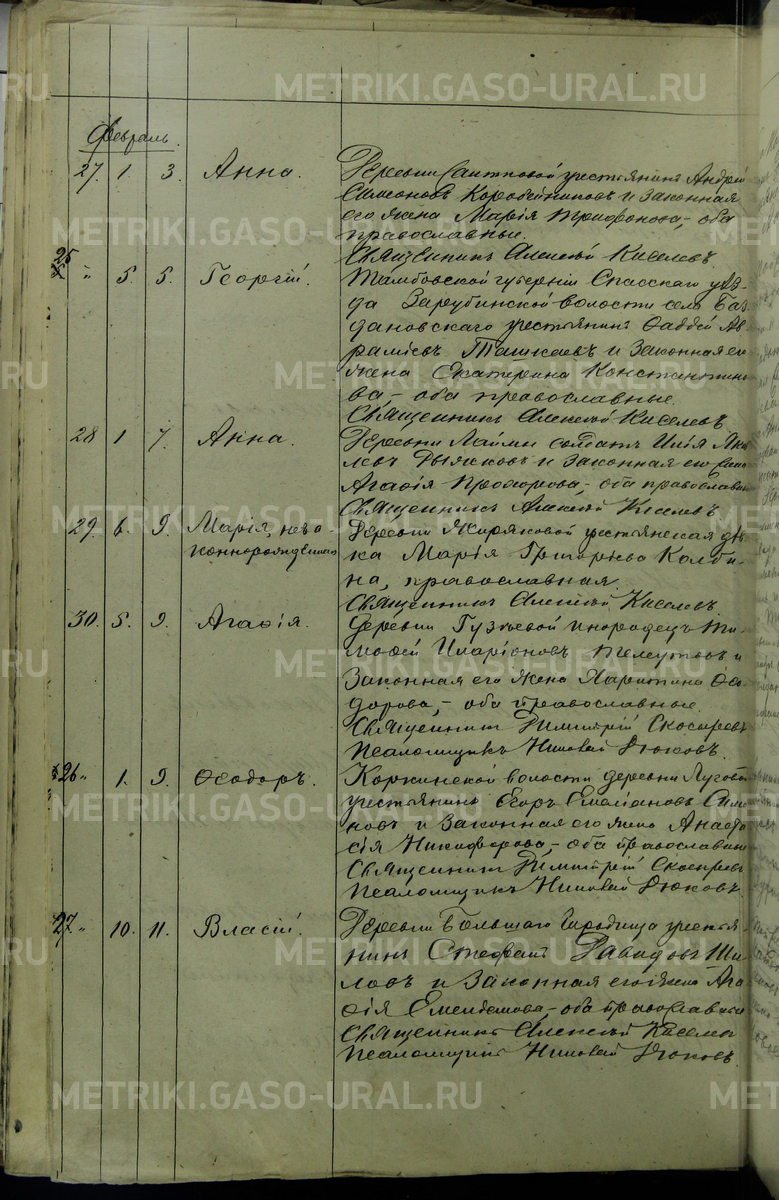 METRIKI.GASO-URAL.RU
Февраль.
27. 1. 3. Анна. Деревни крестьянинъ Андрей
Симеоновъ Коробейниковъ и законная
его жена Марія Трифонова, оба
православные.
Священникъ Алексѣй Киселевъ
25 " 5. 5. Георгій. Тамбовской губерніи Спасскаго уѣз-
да Зарубинской волости села Баг-
дановскаго крестьянинъ Фаддей Ав
рамiевъ Ташкаевъ и законная его
жена Екатерина Константино
ва, – оба православные.
Священникъ Алексѣй Киселевъ
28 1 7. Анна. Деревни солдатъ Илія Яков
левъ Рыжковъ и законная его жена
Агафія Прохорова, – оба православные
Священникъ Алексѣй Киселевъ
29. 6. 9. Марія, неза- Деревни Жиряковой крестьянская дѣв
коннорожденная ка Марія Григорьева Колби-
на, православная.
Священникъ Алексѣй Киселевъ.
30. 5. 9. Агафія. Деревни Гузѣевой инородецъ Ти-
моѳей Иларіоновъ Телеутовъ и
законная его жена Харитина Ѳео-
дорова, – оба православные.
Священникъ Димитрій Скосыревъ
Псаломщикъ Дюковъ.
26 " 1. 9. Ѳеодоръ. Коркинской волости деревни Луговой
крестьянинъ Егоръ Емеліановъ Симо
новъ и законная его жена Анаста
сія Никифорова, – оба православные
Священникъ Димитрій Скосыревъ
Псаломщикъ Дюковъ
27 " 10. 11. Власій. Деревни Большаго Городища крестья
нинъ Стефанъ Давидовъ Ши-
ловъ и законная его жена Ага
фія – оба православные
Священникъ Алексѣй Киселевъ
Псаломщикъ Дюковъ.